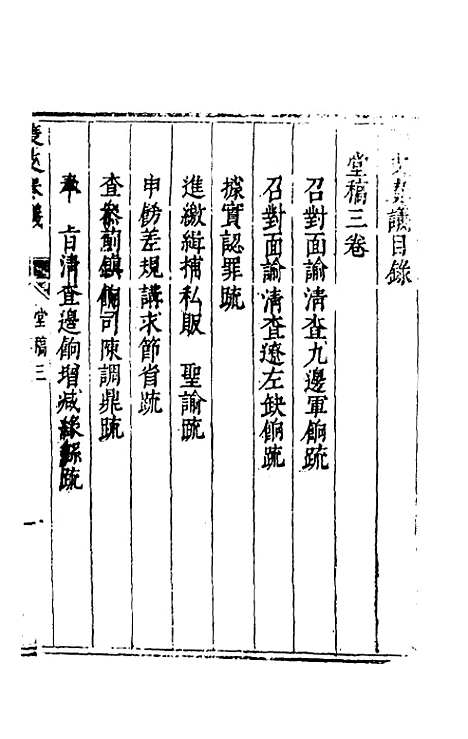 奏議目錄
堂稿三卷
召對面諭清查九邊軍餉疏
召對面諭清查遼左缺餉疏
據實認罪疏
進繳緝捕私販　聖諭疏
申飭差規講求節省疏
查參前鎮餉司陳調鼎疏
奉　旨清查邊餉增減緣繇疏
堂稿三
一